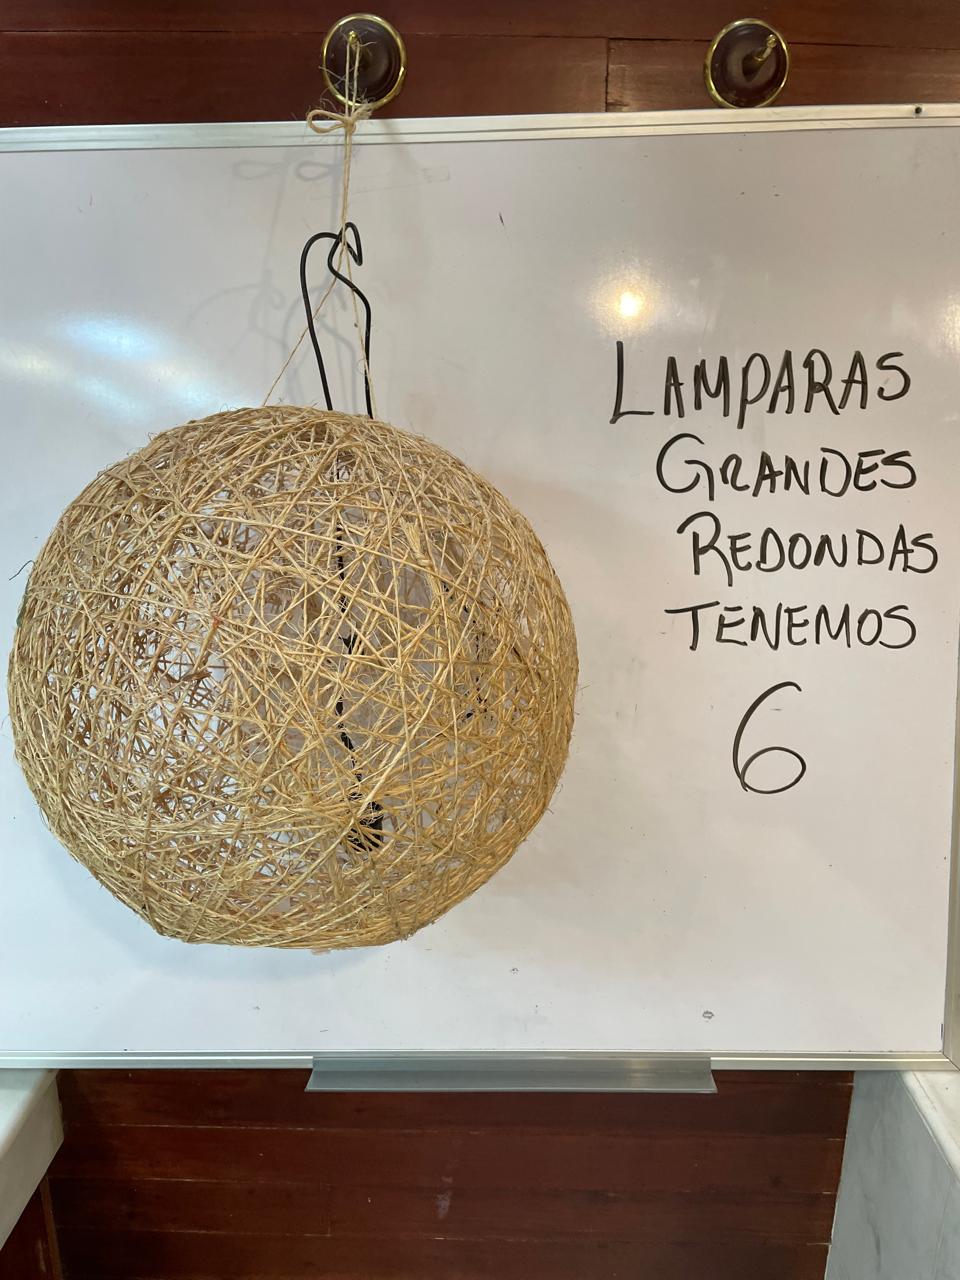 LAMPARAS
GRANDES
REDONDAS
TENEMOS
6